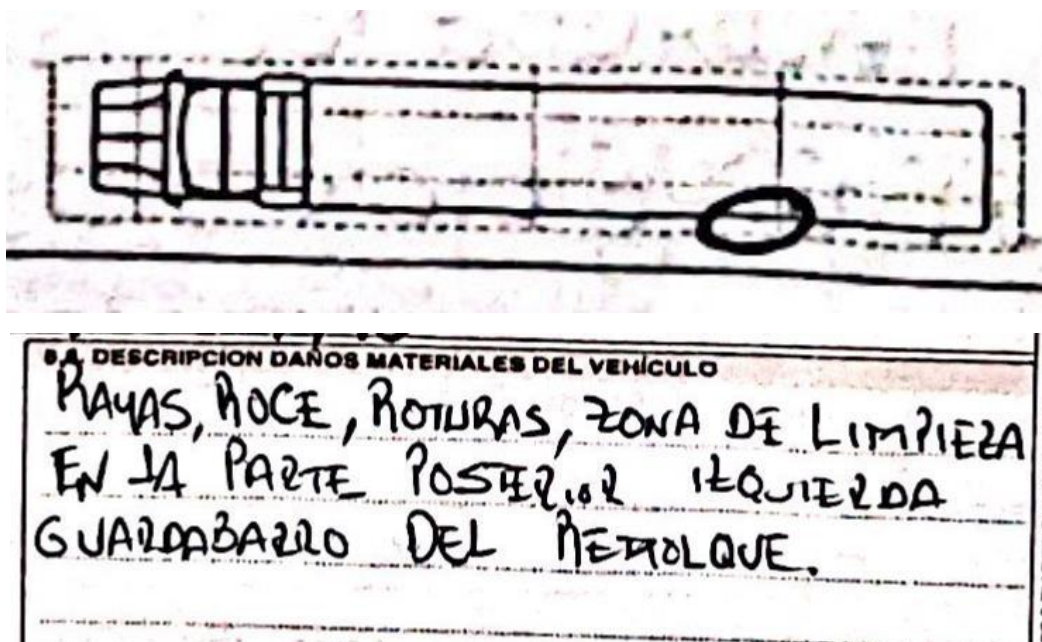 8.4. DESCRIPCION DAÑOS MATERIALES DEL VEHÍCULO
RAYAS, ROCE, ROTURAS, ZONA DE LIMPIEZA
EN LA PARTE POSTERIOR IZQUIERDA
GUARDABARRO DEL REMOLQUE.